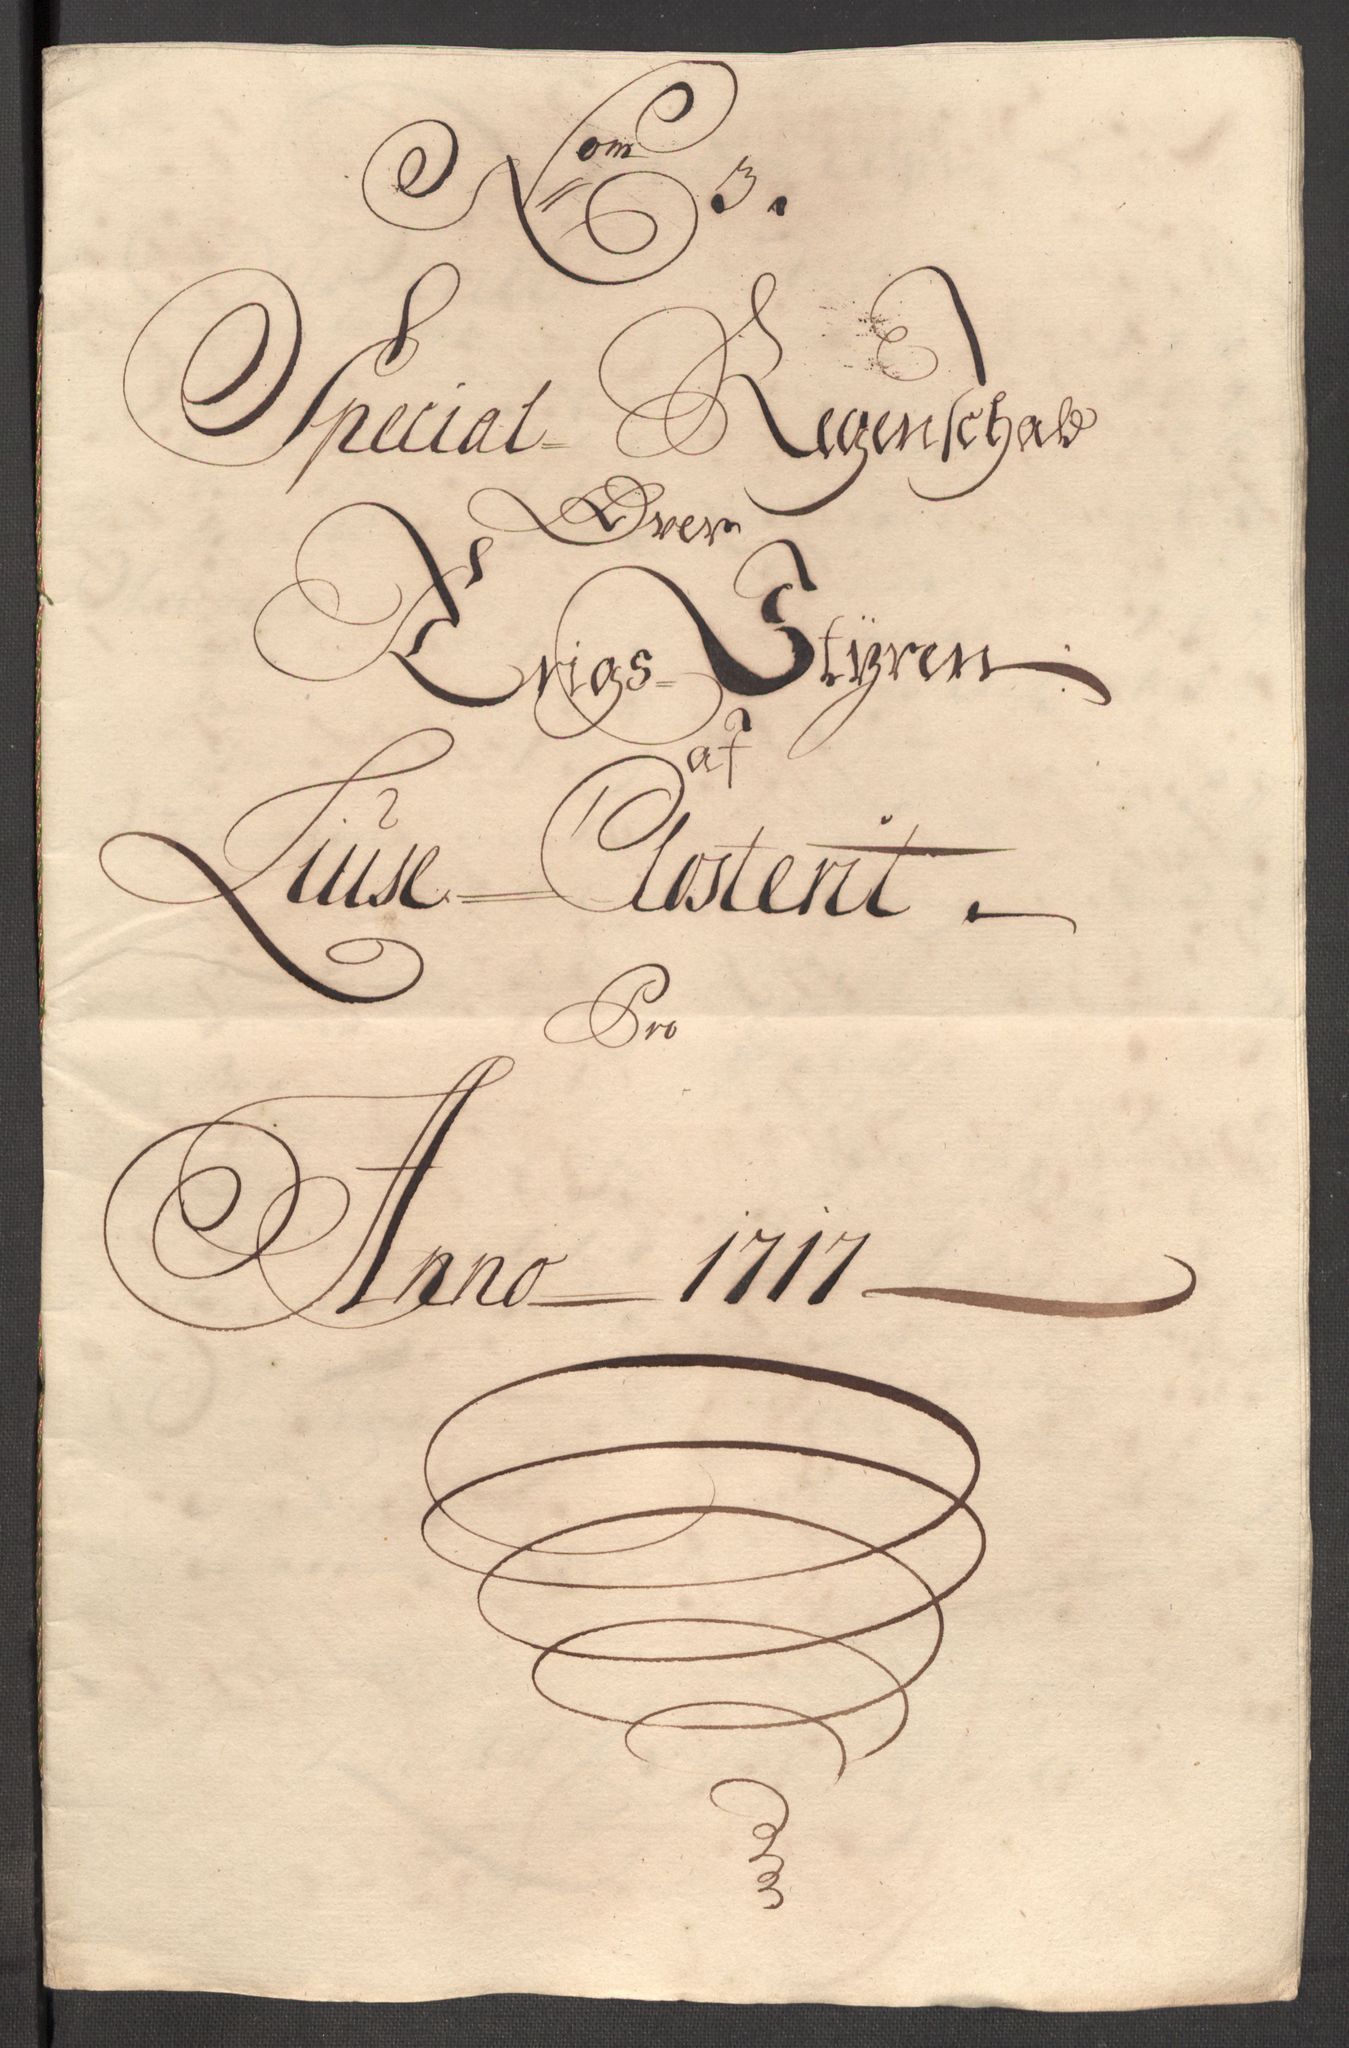 Nom 3.
Special- Regenschab
Over
Krigs- Styren
af
Liuse- Closterit.
Pro
Anno 1717